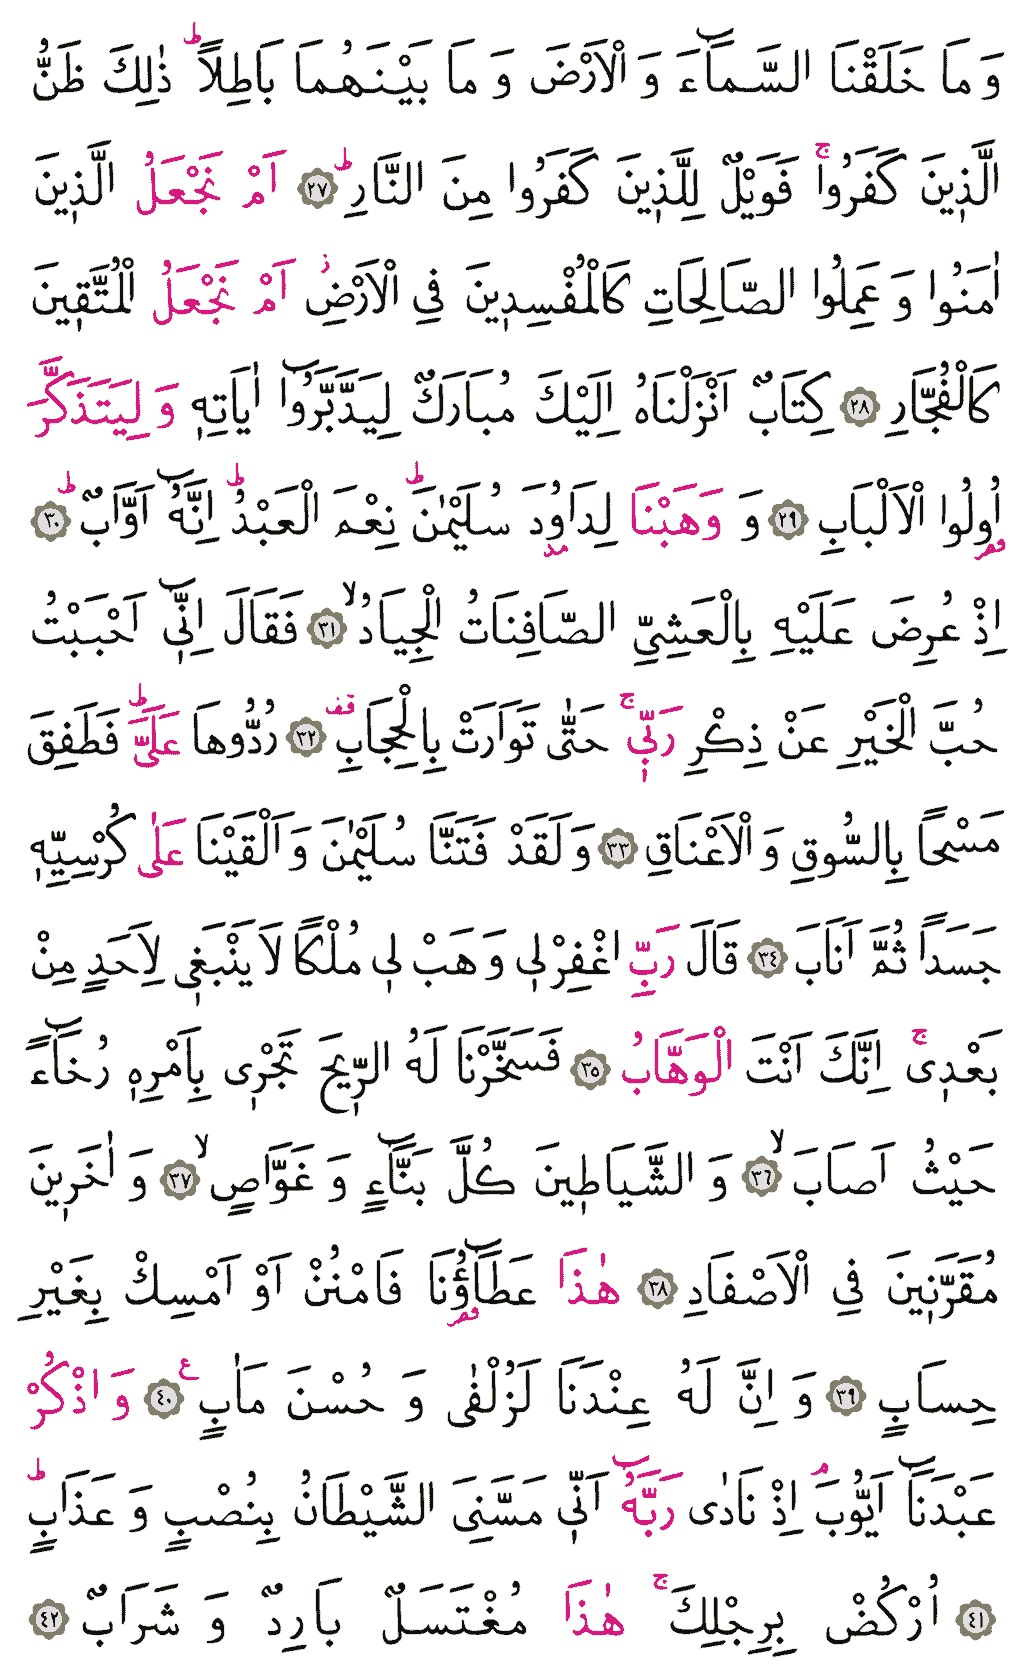 وَ مَا خَلَقْنَا السَّمَآءَ وَ الْاَرْضَ وَ مَا بَيْنَهُمَا بَاطِلًاۜ ذٰلِكَ ظَنُّ
الَّذِينَ كَفَرُواۚ فَوَيْلٌ لِلَّذِينَ كَفَرُوا مِنَ النَّارِؕ ﴿٢٧﴾ اَمْ نَجْعَلُ الَّذِينَ
اٰمَنُوا وَ عَمِلُوا الصَّالِحَاتِ كَالْمُفْسِدِينَ فِي الْاَرْضِؗ اَمْ نَجْعَلُ الْمُتَّقِينَ
كَالْفُجَّارِ ﴿٢٨﴾ كِتَابٌ اَنْزَلْنَاهُ اِلَيْكَ مُبَارَكٌ لِيَدَّبَّرُوٓا اٰيَاتِهٖ وَ لِيَتَذَكَّرَ
اُولُوا الْاَلْبَابِ ﴿٢٩﴾ وَ وَهَبْنَا لِدَاوُدَ سُلَيْمٰنَؕ نِعْمَ الْعَبْدُؕ اِنَّهُٓ اَوَّابٌؕ ﴿٣٠﴾
اِذْ عُرِضَ عَلَيْهِ بِالْعَشِيِّ الصَّافِنَاتُ الْجِيَادُۙ ﴿٣١﴾ فَقَالَ اِنِّيٓ اَحْبَبْتُ
حُبَّ الْخَيْرِ عَنْ ذِكْرِ رَبِّيۚ حَتّٰى تَوَارَتْ بِالْحِجَابِ قف ﴿٣٢﴾ رُدُّوهَا عَلَيَّؕ فَطَفِقَ
مَسْحًا بِالسُّوقِ وَ الْاَعْنَاقِ ﴿٣٣﴾ وَ لَقَدْ فَتَنَّا سُلَيْمٰنَ وَ اَلْقَيْنَا عَلٰى كُرْسِيِّهٖ
جَسَدًا ثُمَّ اَنَابَ ﴿٣٤﴾ قَالَ رَبِّ اغْفِرْلِي وَ هَبْ لِي مُلْكًا لَا يَنْبَغِي لِاَحَدٍ مِنْ
بَعْدِيۚ اِنَّكَ اَنْتَ الْوَهَّابُ ﴿٣٥﴾ فَسَخَّرْنَا لَهُ الرِّيحَ تَجْرِي بِاَمْرِهٖ رُخَآءً
حَيْثُ اَصَابَۙ ﴿٣٦﴾ وَ الشَّيَاطِينَ كُلَّ بَنَّآءٍ وَ غَوَّاصٍۙ ﴿٣٧﴾ وَ اٰخَرِينَ
مُقَرَّنِينَ فِي الْاَصْفَادِ ﴿٣٨﴾ هٰذَا عَطَآؤُنَا فَامْنُنْ اَوْ اَمْسِكْ بِغَيْرِ
حِسَابٍ ﴿٣٩﴾ وَ اِنَّ لَهُ عِنْدَنَا لَزُلْفٰى وَ حُسْنَ مَاٰبٍ ع ﴿٤٠﴾ وَ اذْكُرْ
عَبْدَنَآ اَيُّوبَۘ اِذْ نَادٰى رَبَّهُٓ اَنِّي مَسَّنِيَ الشَّيْطَانُ بِنُصْبٍ وَ عَذَابٍؕ
﴿٤١﴾ اُرْكُضْ بِرِجْلِكَۚ هٰذَا مُغْتَسَلٌ بَارِدٌ وَ شَرَابٌ ﴿٤٢﴾